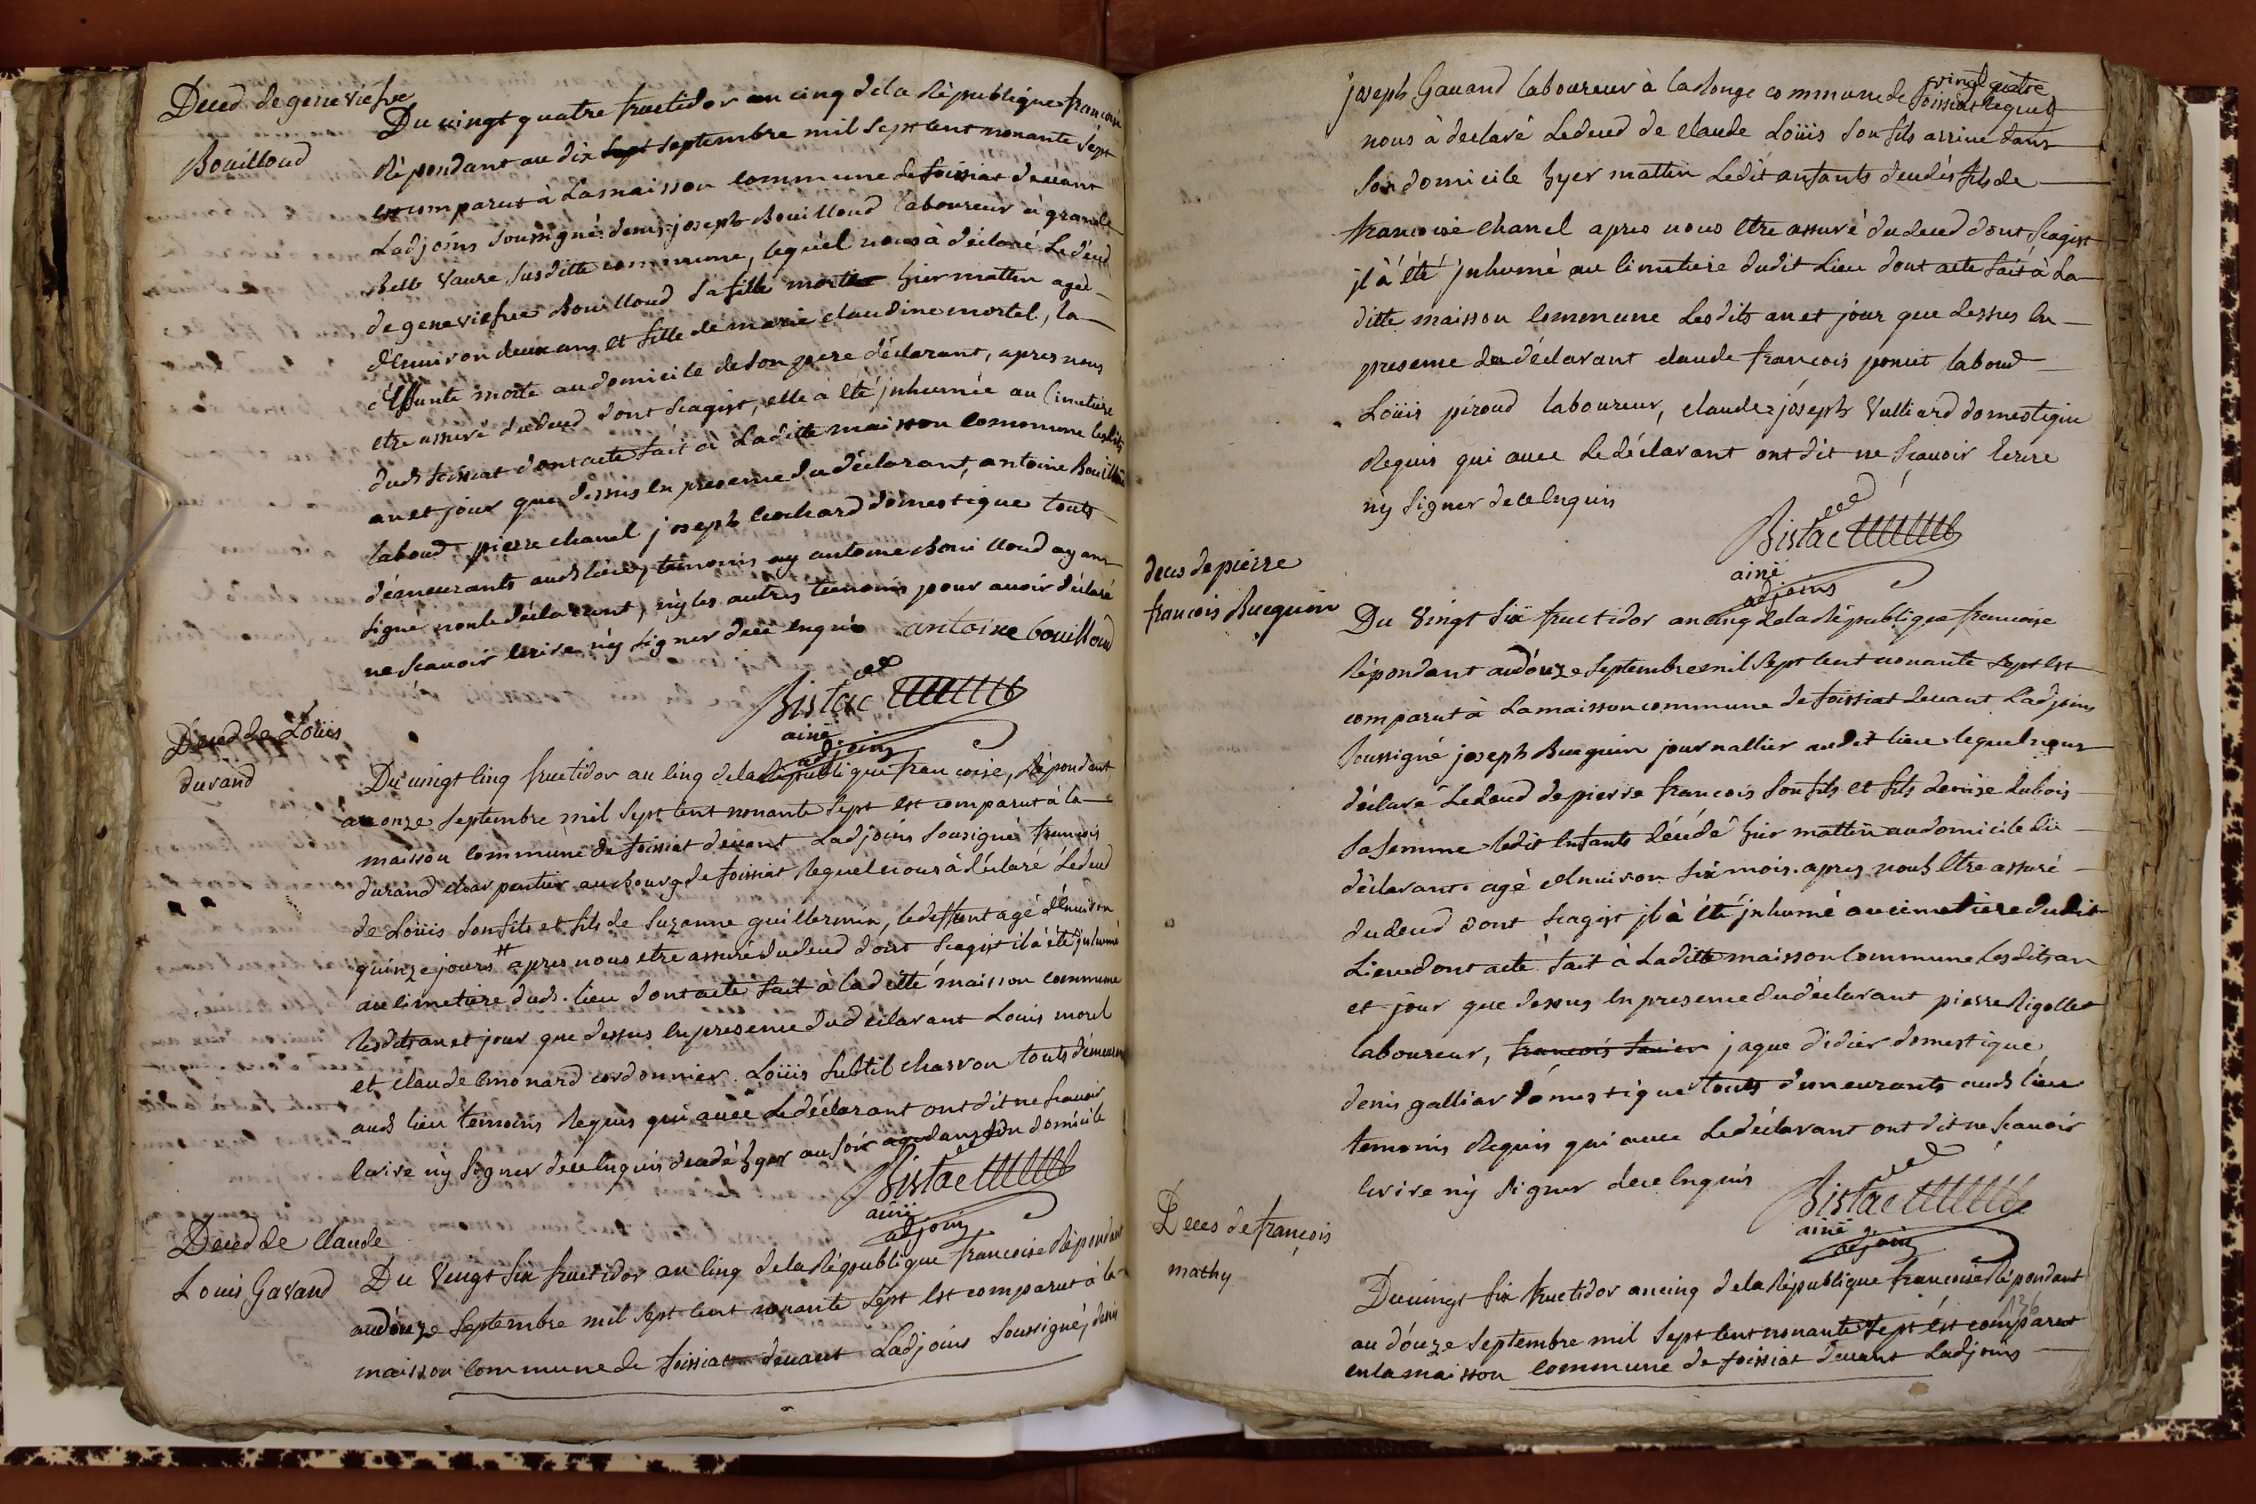 Deced de geneviefve
Bouilloud
Du vingt quatre fructidor an cinq de la République françoise
Répondant au dix sept septembre mil sept cent nonante sept
est comparut à la maisson commune de foissiat devant
Ladjoins soussigné denis joseph Bouilloud laboureur à grande
vaure susditte commune, lequel nous à déclaré Le déced
de geneviefve Bouilloud sa fille morte hier mattin ageé
d'environ deux ans et fille de marie claudine mortel, la
déffunte morte au domicile de son pere déclarant, apres nous
etre assuré du déced dont seagist, elle à eté jnhumée au cimetiere
dud foissiat dont acte fait à Laditte maisson commune lesdits
an et jour que dessus en presence du déclarant, antoine Bouilloud
laboud pierre chanel joseph cochard domestique touts
démeurants auds lieu, temoins ny antoine Bouilloud ayant
signé non le déclarant, ny les autres temoins pour avoir déclaré
ne scavoir écrire ny signer de ce enquis antoine bouilloud
Bistac
ainé
adjoins
Deced de Loüis
durand
Du vingt cinq fructidor an cinq de la République françoise, Répondant
au onze septembre mil sept cent nonante sept est comparut à la
maisson commune de foissiat devant Ladjoins sousigné françois
durand charpentier au bourg de foissiat lequel nous à déclaré le deced
de Loüis son fils et fils de suzanne guillermin, le deffunt agé d'environ
quinze jours # apres nous etre assuré du deced dont seagist il à été jnhumé
au cimetiere duds. lieu dont acte fait à laditte maisson commune
lesdits an et jour que dessus en presence du déclarant Louis morel
et claude monard cordonnier. Loüis subtil charron touts démeurants
auds lieu temoins Requis qui avec le déclarant ont dit ne scavoir
écrire ny signer de ce enquis décédé hyer au soir dans son domicile
Bistac
ainé
adjoins
Deced de claude
Louis Gavand
Du vingt six fructidor an cinq de la République françoise Répondant
au douze septembre mil sept cent nonante sept est comparut à la
maisson commune de foissiat devant Ladjoins soussigné, denis
joseph Gavand laboureur à la longe commune de foissiat lequel
vingt quatre
nous à declaré Le deced de claude Loüis son fils arrivé dans
son domicile hyer mattin Ledit enfants décédés fils de
francoise chanel apres nous etre assuré du deced dont seagist
il à été jnhumé au cimetiere dudit Lieu dont acte fait à la
ditte maisson commune les dits an et jour que dessus en
presence du déclarant claude francois poncet laboud
Loüis piroud laboureur, claude joseph vulliard domestique
Requis qui avec le déclarant ont dit ne scavoir écrire
ny signer de ce enquis
Bistac
ainé
adjoins
deces de pierre
francois Buequin
Du vingt six fructidor an cinq de la République francoise
Répondant au douze septembre mil sept cent nonante sept est
comparut à La maisson commune de foissiat devant Ladjoins
soussigné joseph Buequin journallier audit lieu lequel nous
déclaré Le deced de pierre francois son fils et fils denise dubois
sa femme ledit enfants décédé hier mattin au domicile du
déclarant agé d'environ six mois. apres nous etre assuré
du deced dont seagist il à été jnhumé au cimetiere dudit
Lieu dont acte fait à Laditte maisson commune Lesdits an
et jour que dessus en presence du déclarant pierre Rigollet
laboureur, jaque didier domestique
denis galliar domestique touts demeurants auds lieu
temonis Requis qui avec le déclarant ont dit ne scavoir
écrire ny signer de ce enquis
Bistac
ainé
adjoins
Deces de françois
mathy
Du vingt six fructidor an cinq de la République francoise Répondant
au douze septembre mil sept cent nonante sept est comparut
136
en la maisson commune de foissiat devant Ladjoins